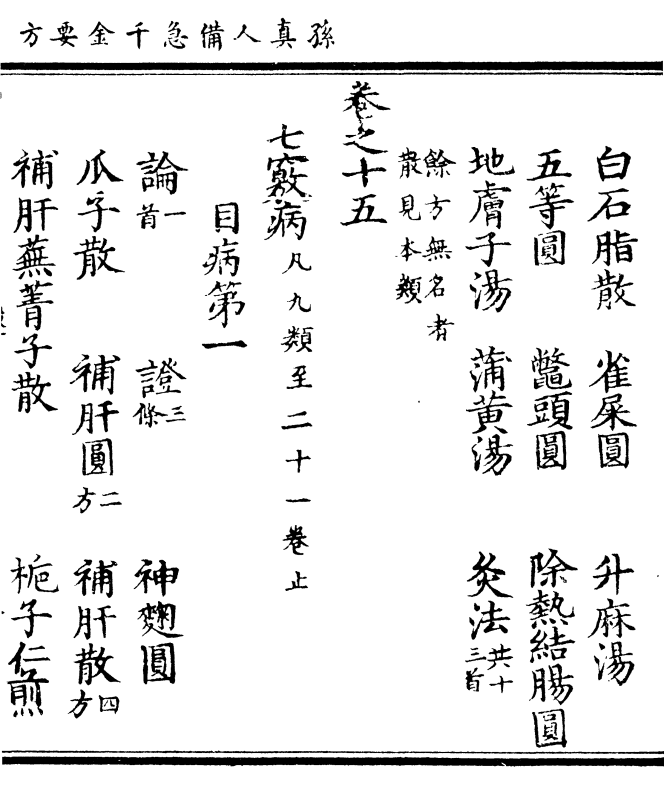 孫真人備急千金要方
白石脂散 雀屎圓 升麻湯
五等圓 鼈頭圓 除熱結腸圓
地膚子湯 蒲黃湯 灸法共十三首
餘方無名者
散見本類
卷之十五
七竅病凡九類至二十一卷止
目病第一
論一首 證三條 神麴圓
瓜子散 補肝圓二方 補肝散四方
補肝蕪菁子散 梔子仁煎